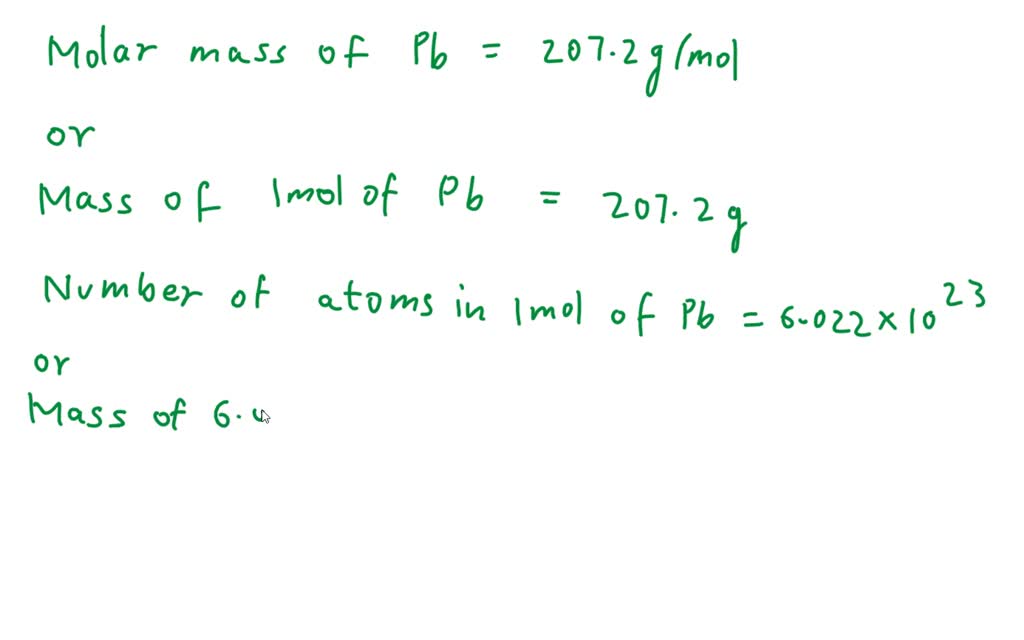 Molar mass of Pb = 207.2 g/mol
or
Mass of 1mol of Pb = 207.2 g
Number of atoms in 1mol of Pb = 6.022 × 10²³
or
Mass of 6.